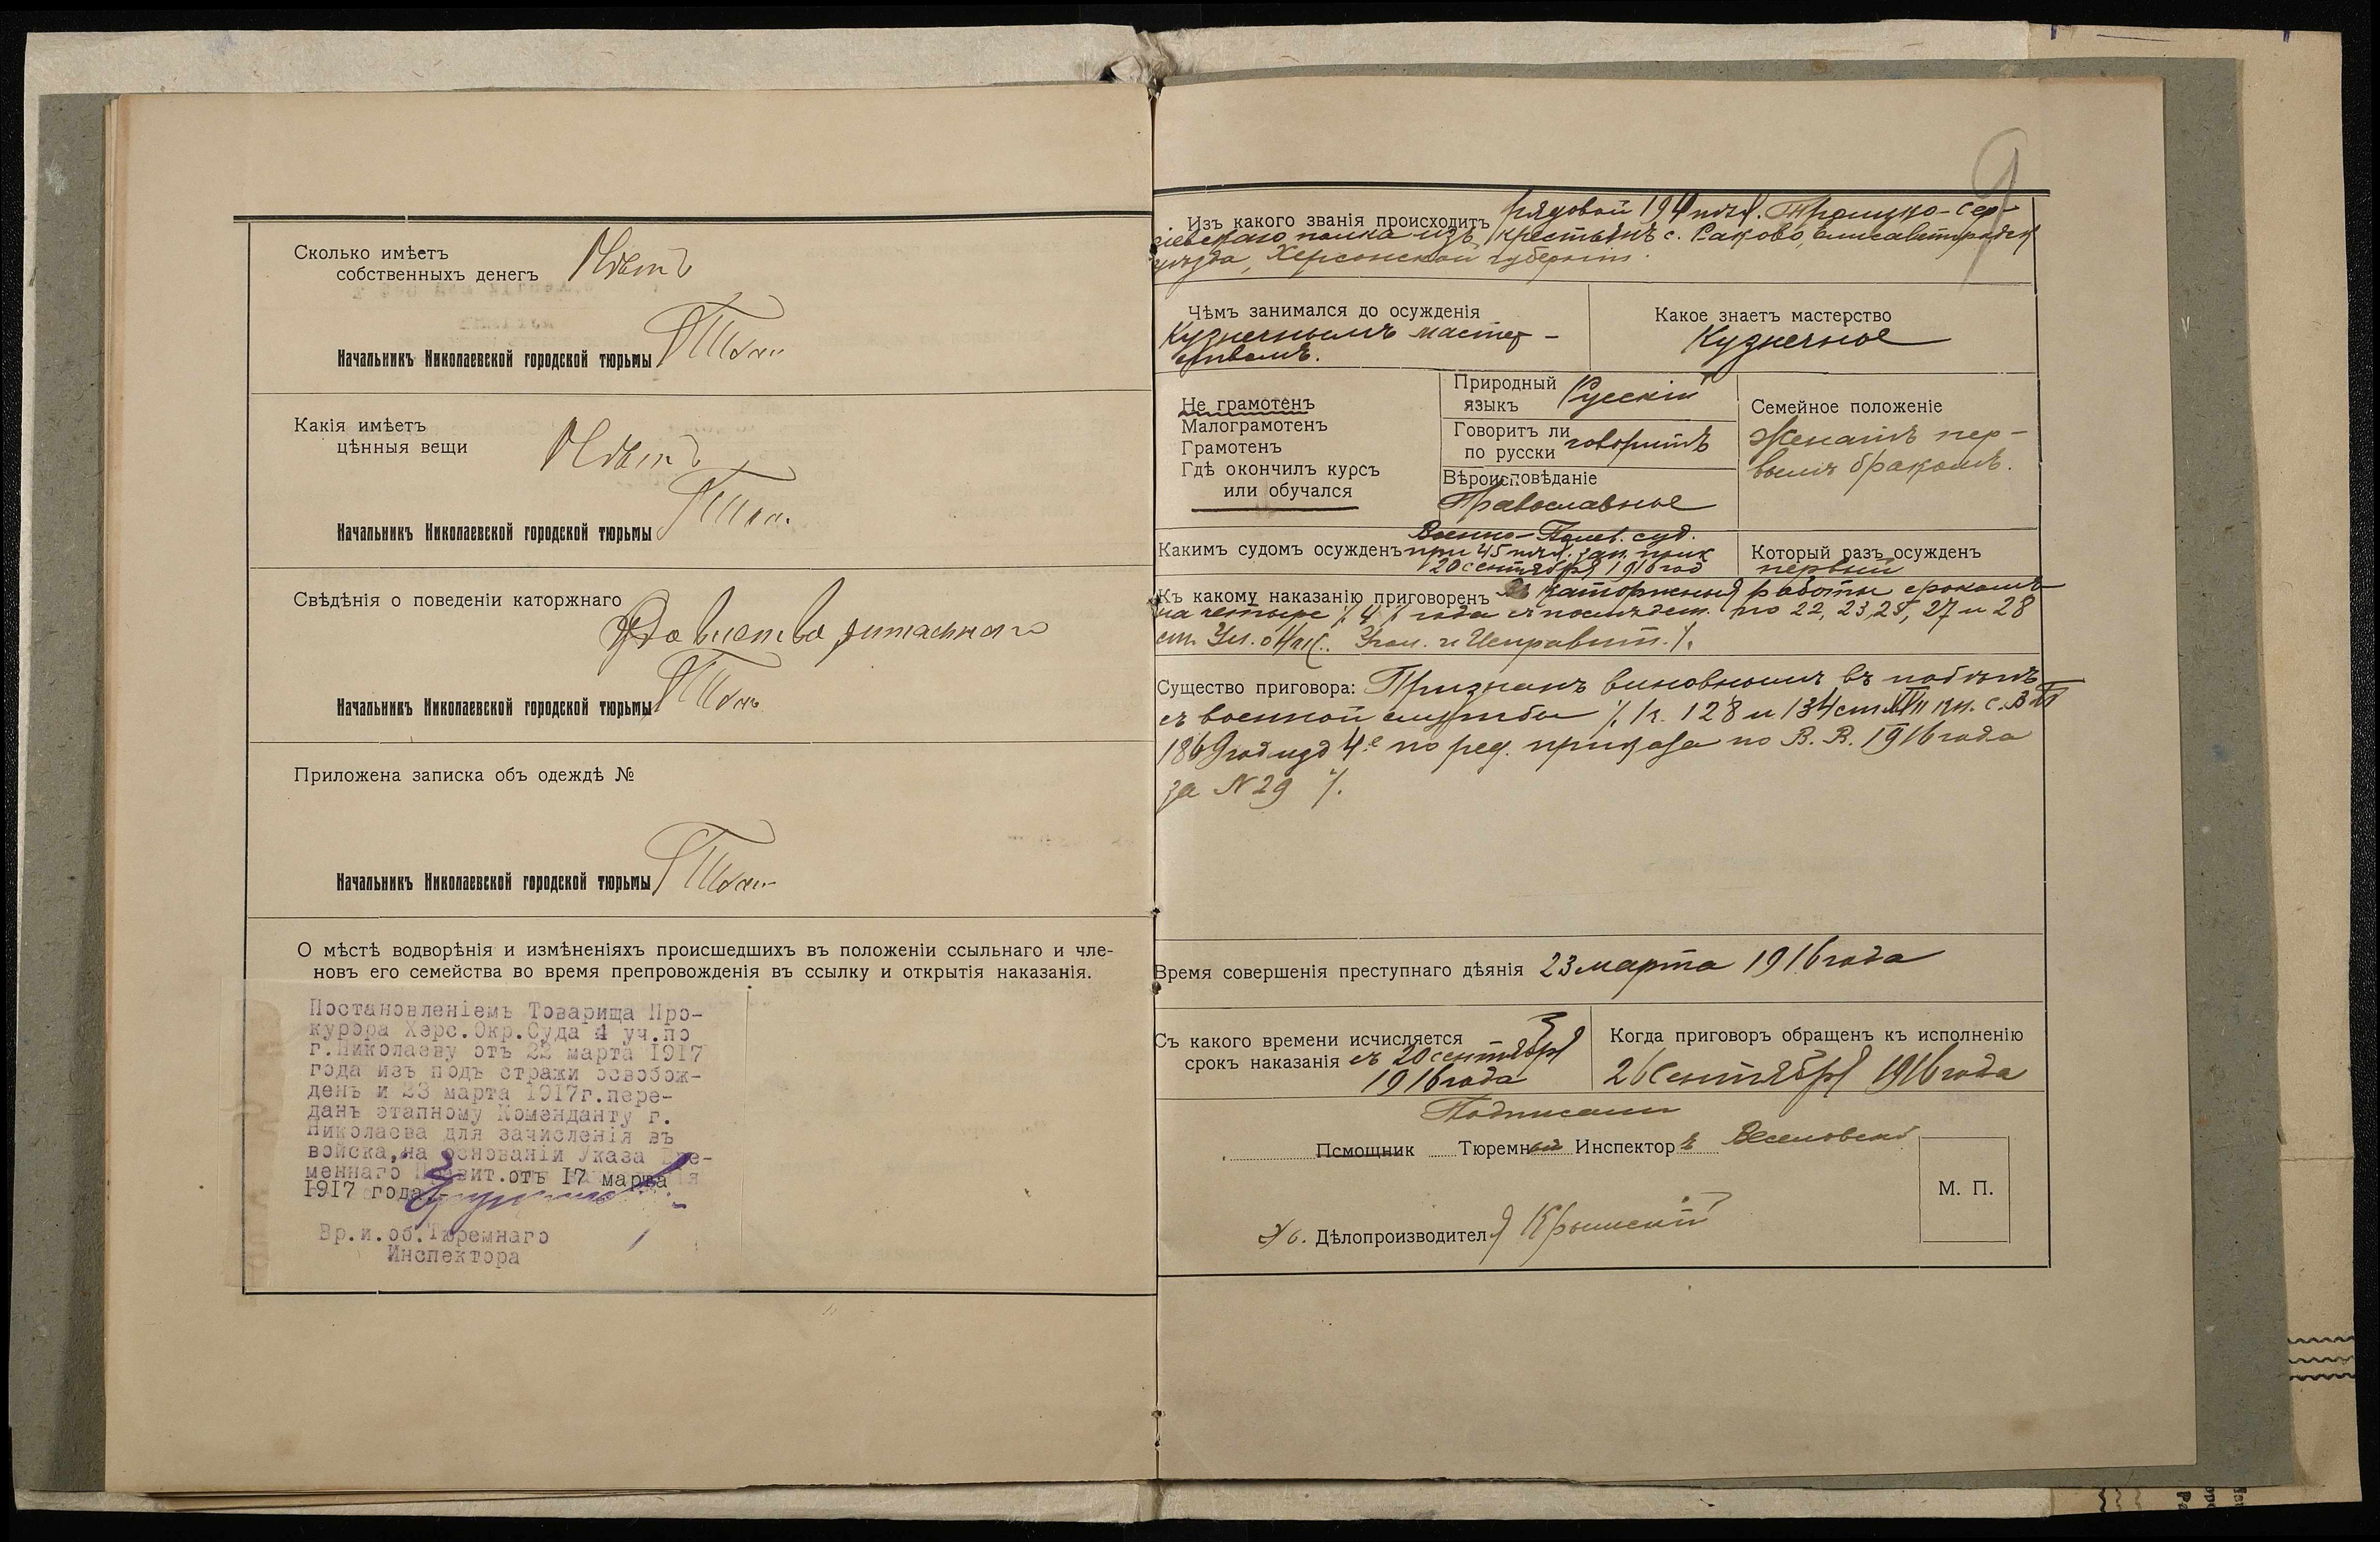 Сколько имѣетъ
собственныхъ денегъ Нѣтъ
Начальникъ Николаевской городской тюрьмы
Какія имѣетъ
цѣнныя вещи Нѣтъ
Начальникъ Николаевской городской тюрьмы
Свѣдѣнія о поведеніи каторжнаго
Начальникъ Николаевской городской тюрьмы
Приложена записка объ одеждѣ №
Начальникъ Николаевской городской тюрьмы
О мѣстѣ водворѣнія и измѣненіяхъ происшедшихъ въ положеніи ссыльнаго и чле-
новъ его семейства во время препровожденія въ ссылку и открытія наказанія.
Постановленіемъ Товарища Про-
курора Херс.Окр.Суда 4 уч.по
г.Николаеву отъ 22 марта 1917
года изъ подъ стражи освобож-
денъ и 23 марта 1917г.пере-
данъ этапному Коменданту г.
Николаева для зачисленія въ
войска,на основаніи Указа Вре-
меннаго Правит.отъ 17 марта
1917 года.-
Вр.и.об.Тюремнаго
Инспектора
9
Изъ какого званія происходитъ рядовой 194 пѣх. Троицко-Сер-
гіевскаго полка изъ крестьянъ с. Раково, Елисаветградск
уѣзда, Херсонской губерніи.
Чѣмъ занимался до осужденія
Кузнечнымъ мастер-
ствомъ.
Какое знаетъ мастерство
Кузнечное
Не грамотенъ
Малограмотенъ
Грамотенъ
Гдѣ окончилъ курсъ
или обучался
Природный
языкъ Русскій
Говоритъ ли
по русски говоритъ
Вѣроисповѣданіе
Православное
Семейное положеніе
Женатъ пер-
вымъ бракомъ.
Какимъ судомъ осужденъ Военно-Полев. суд.
при 45 пѣх. зап. полк
20 сентября 1916 год
Который разъ осужденъ
первый
Къ какому наказанію приговоренъ Въ каторжныя работы срокомъ
на четыре /. 4 /. года съ послѣдст. по 22, 23, 25, 27 и 28
ст. Ул. о Нак. Угол. и Исправит. /.
Существо приговора: Признанъ виновнымъ въ побѣгѣ
съ военной службы /. 128 и 134 ст. XXII кн. С.В.П.
1869 год изд 4.е по ред. приказа по В. В. 1916 года
за N 29 /.
Время совершенія преступнаго дѣянія 23 марта 1916 года
Съ какого времени исчисляется
срокъ наказанія съ 20 сентября
1916 года
Когда приговоръ обращенъ къ исполненію
26 Сентября 1916 года
Подписали
Помощник Тюремный Инспекторъ
Дѣлопроизводителя Крымскій
М. П.